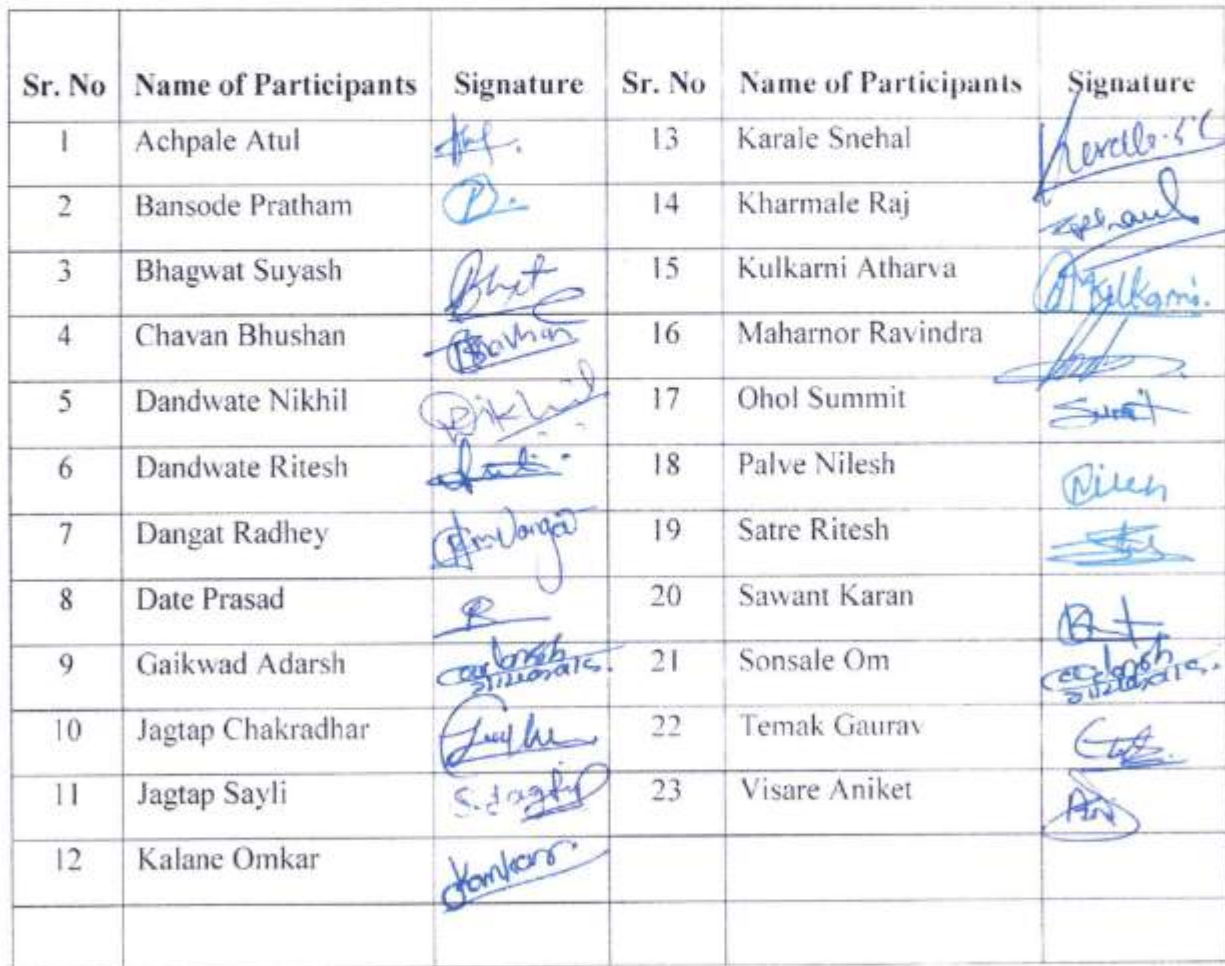 Sr. No Name of Participants Signature Sr. No Name of Participants Signature
1 Achpale Atul 13 Karale Snehal
2 Bansode Pratham 14 Kharmale Raj
3 Bhagwat Suyash 15 Kulkarni Atharva Kulkarni.
4 Chavan Bhushan 16 Maharnor Ravindra
5 Dandwate Nikhil Nikhil 17 Ohol Summit Sumit
6 Dandwate Ritesh 18 Palve Nilesh Nilesh
7 Dangat Radhey 19 Satre Ritesh
8 Date Prasad 20 Sawant Karan
9 Gaikwad Adarsh 21 Sonsale Om
10 Jagtap Chakradhar 22 Temak Gaurav
11 Jagtap Sayli S. Jagtap 23 Visare Aniket
12 Kalane Omkar